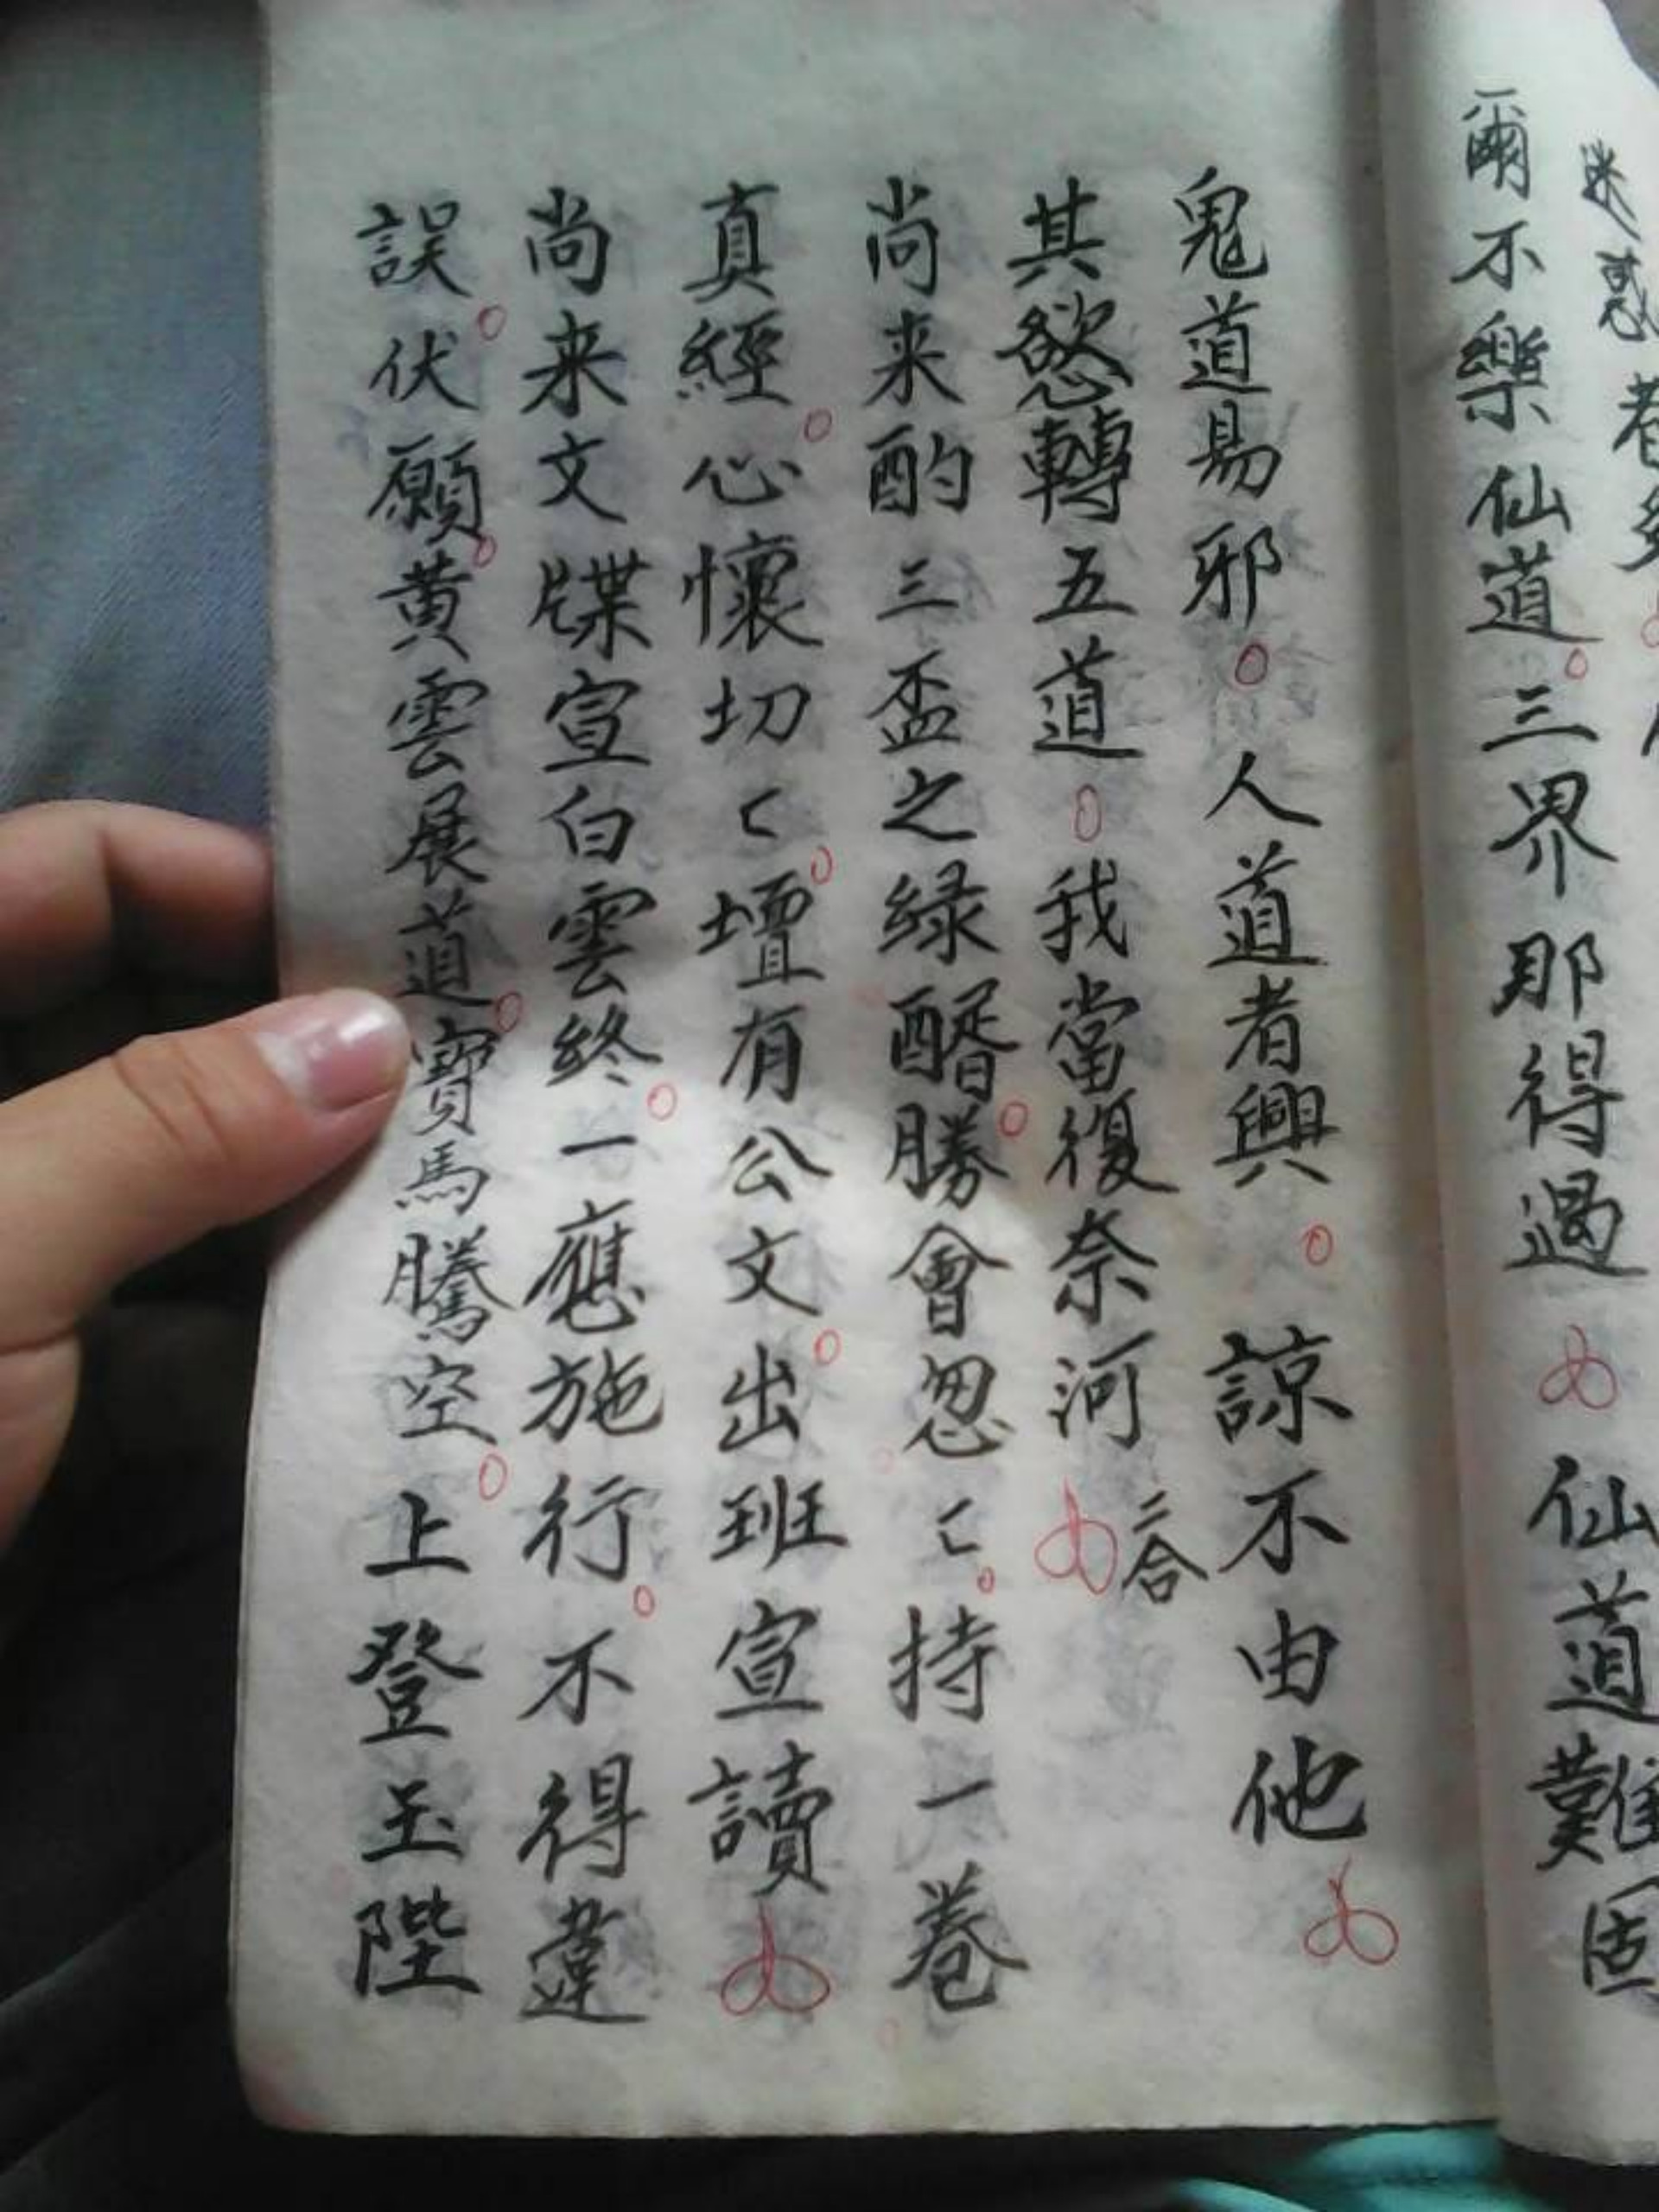 迷惑
爾不樂仙道三界那得過仙道難固
鬼道易邪人道者興諒不由他
其慾轉五道我當復奈河二合
尚来酌三盃之緑醑勝會忽〻持一巻
真經心懷切〻壇有公文出班宣讀
尚来文牒宣白雲終一應施行不得違
誤伏願黄雲展道寶馬騰空上登玉陛